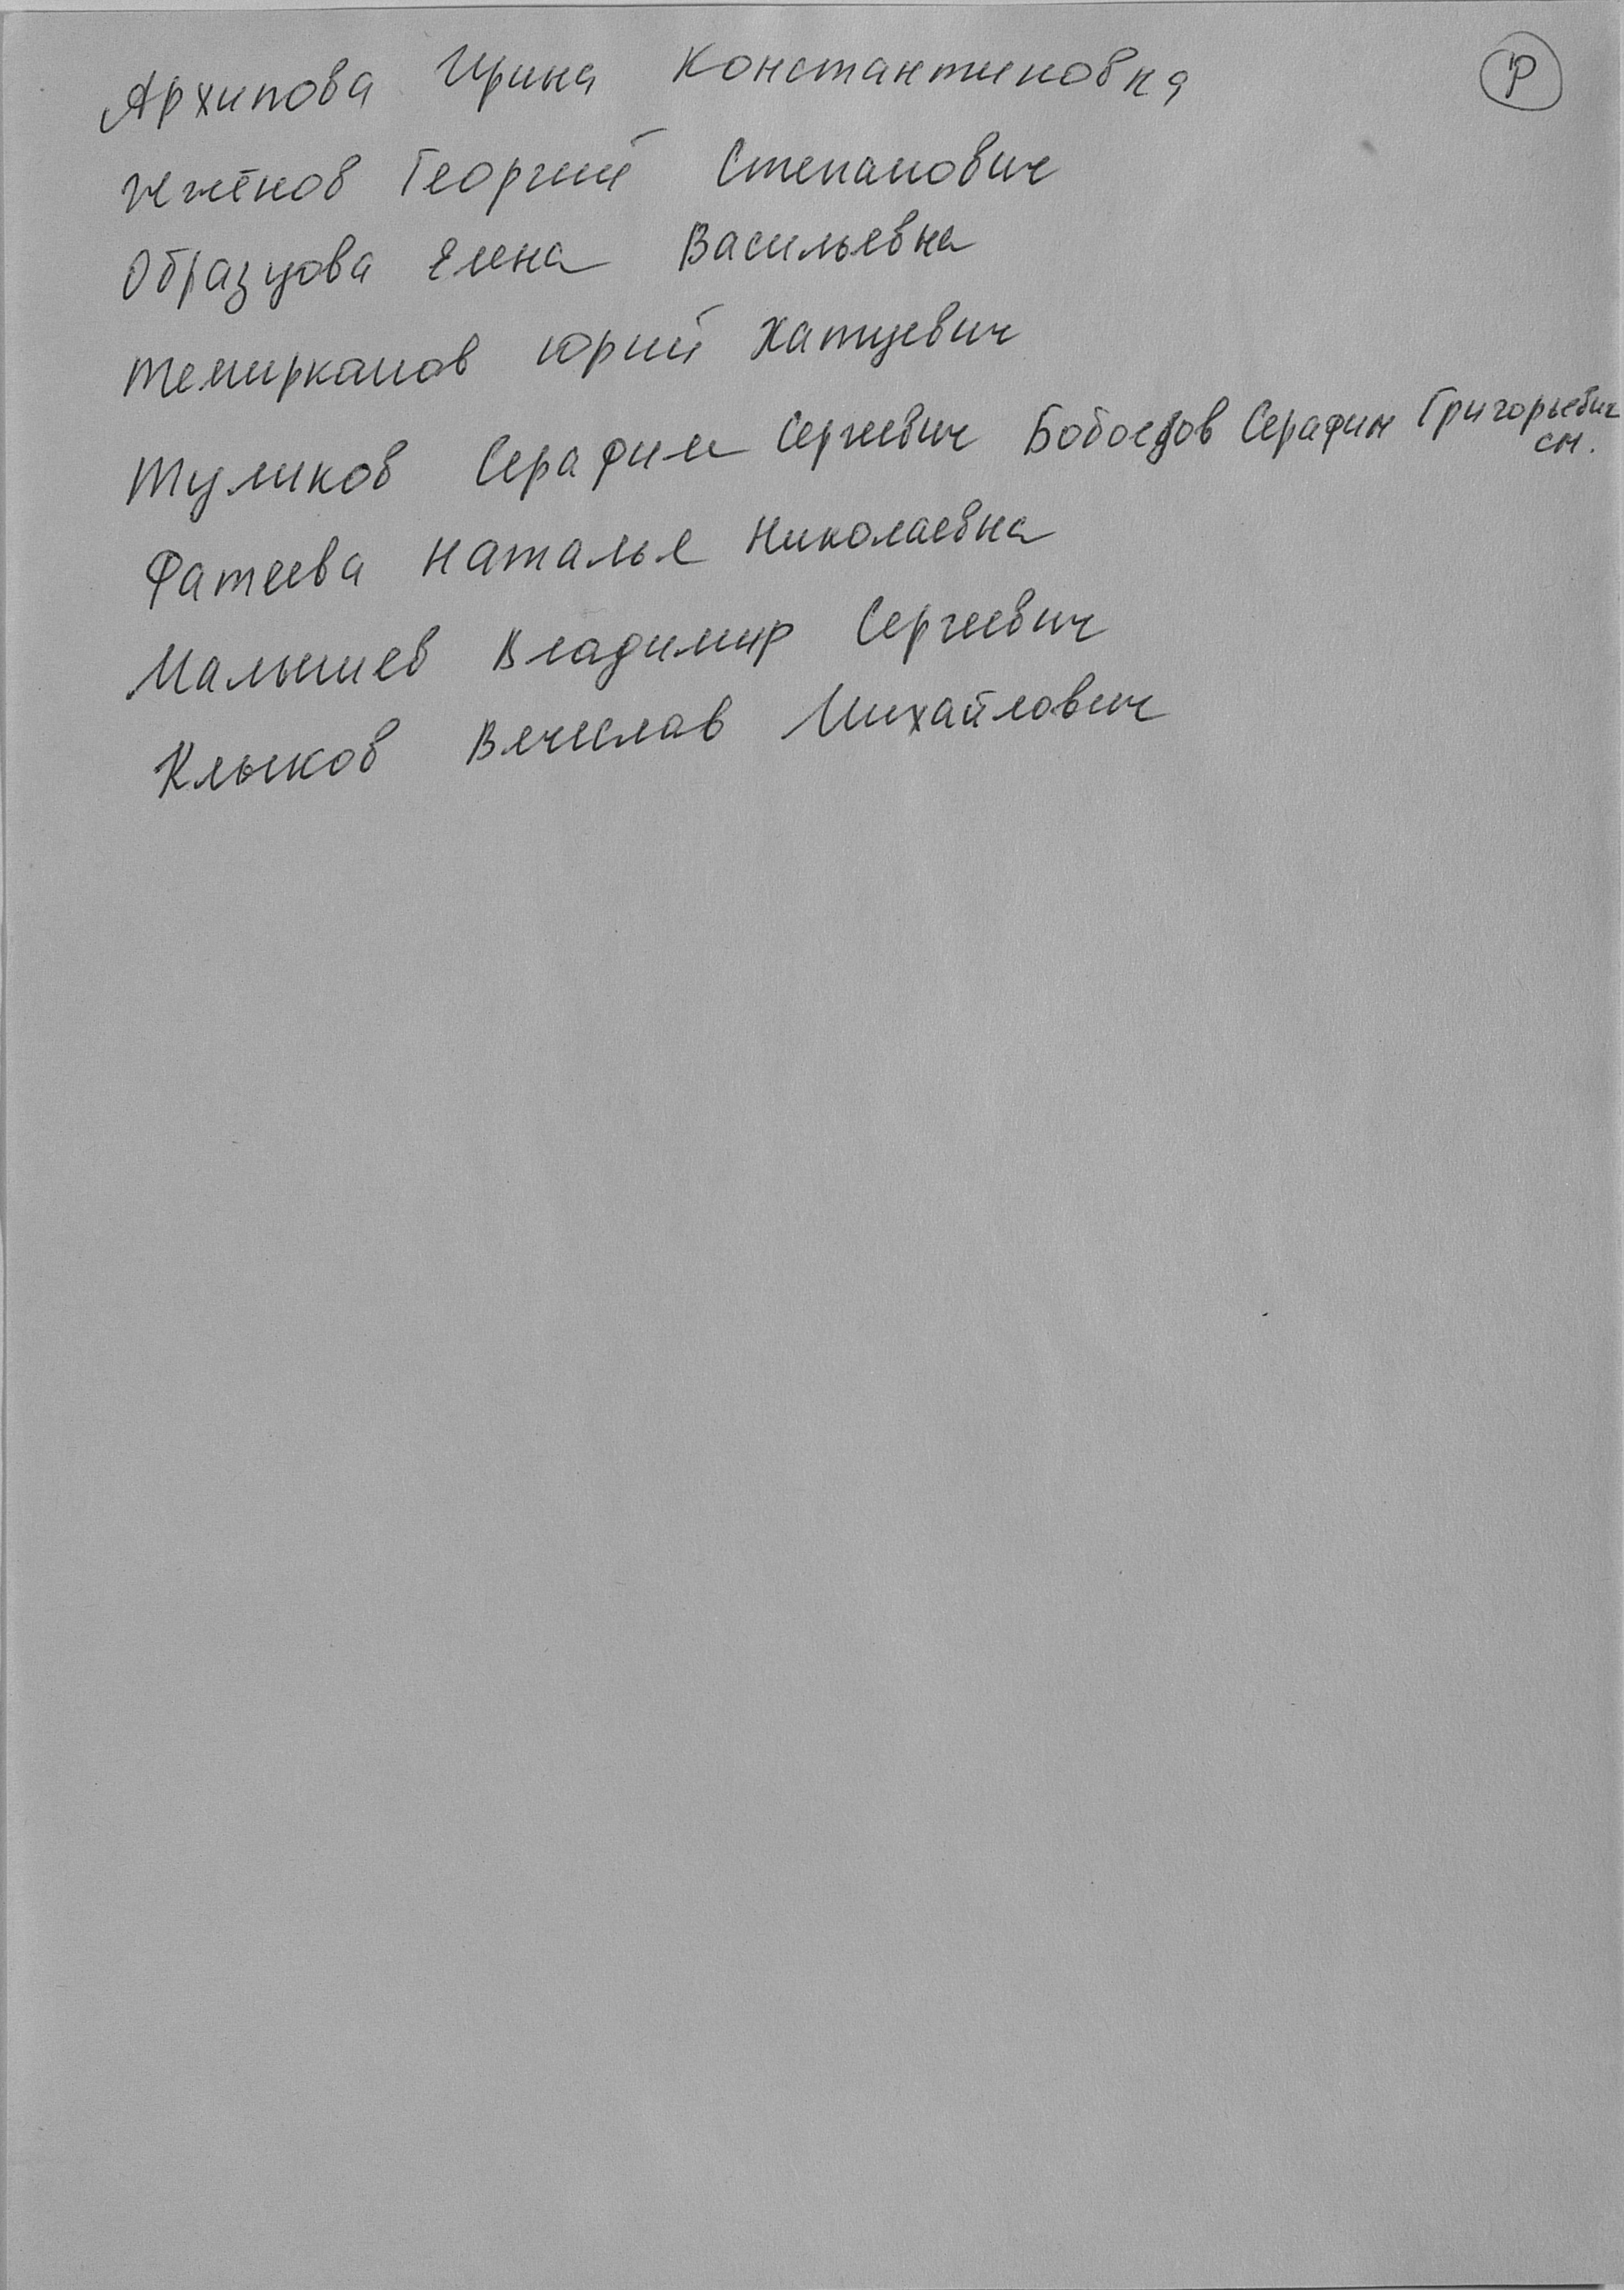 Архипова Ирина Константиновна
Р
Жжёнов Георгий Степанович
Образцова Елена Васильевна
Темирканов Юрий Хатуевич
Туликов Серафим Сергеевич Бобоедов Серафим Григорьевич
см.
Фатеева Наталья Николаевна
Малышев Владимир Сергеевич
Клыков Вячеслав Михайлович